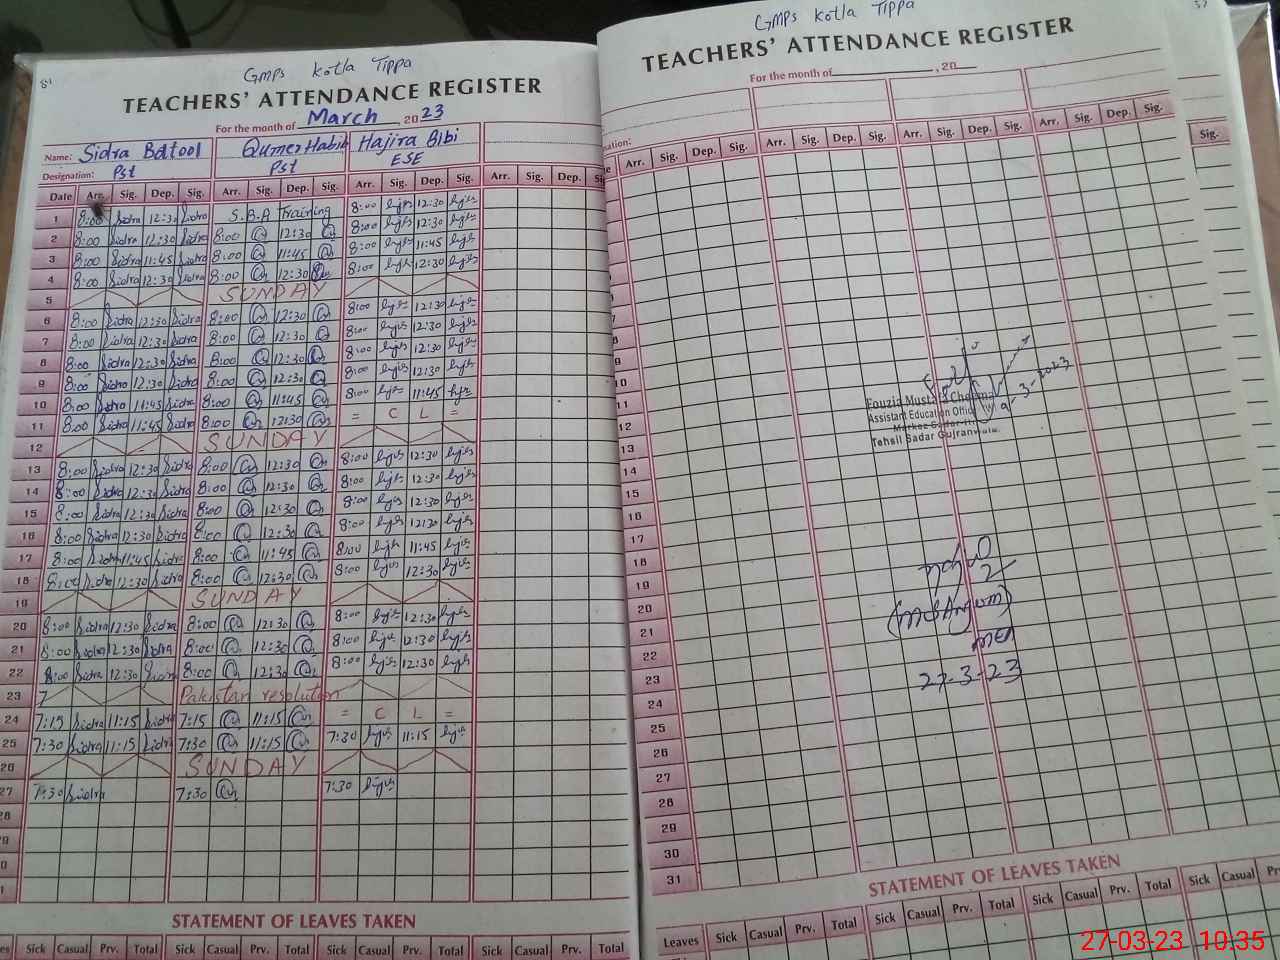 GMPS Kotla Tippa
TEACHERS' ATTENDANCE REGISTER
For the month of March 2023
Name: Sidra Batool Qumer Habib Hajira Bibi
Designation: Pst Pst ESE
Date Arr. Sig. Dep. Sig. Arr. Sig. Dep. Sig. Arr. Sig. Dep. Sig. Arr. Sig. Dep. Sig.
1 8:00 Sidra 12:30 Sidra S.B.A Training 8:00 12:30
2 8:00 Sidra 12:30 Sidra 8:00 12:30 8:00 12:30
3 8:00 Sidra 11:45 Sidra 8:00 11:45 8:00 11:45
4 8:00 Sidra 12:30 Sidra 8:00 12:30 8:00 12:30
5 SUNDAY
6 8:00 Sidra 12:30 Sidra 8:00 12:30 8:00 12:30
7 8:00 Sidra 12:30 Sidra 8:00 12:30 8:00 12:30
8 8:00 Sidra 12:30 Sidra 8:00 12:30 8:00 12:30
9 8:00 Sidra 12:30 Sidra 8:00 12:30 8:00 12:30
10 8:00 Sidra 11:45 Sidra 8:00 11:45 8:00 11:45
11 8:00 Sidra 11:45 Sidra 8:00 12:30 = C L =
12 SUNDAY
13 8:00 Sidra 12:30 Sidra 8:00 12:30 8:00 12:30
14 8:00 Sidra 12:30 Sidra 8:00 12:30 8:00 12:30
15 8:00 Sidra 12:30 Sidra 8:00 12:30 8:00 12:30
16 8:00 Sidra 12:30 Sidra 8:00 12:30 8:00 12:30
17 8:00 Sidra 11:45 Sidra 8:00 11:45 8:00 11:45
18 8:00 Sidra 12:30 Sidra 8:00 12:30 8:00 12:30
19 SUNDAY
20 8:00 Sidra 12:30 Sidra 8:00 12:30 8:00 12:30
21 8:00 Sidra 12:30 Sidra 8:00 12:30 8:00 12:30
22 8:00 Sidra 12:30 Sidra 8:00 12:30 8:00 12:30
23 7 Pakistan resolution
24 7:15 Sidra 11:15 Sidra 7:15 11:15 = C L =
25 7:30 Sidra 11:15 Sidra 7:30 11:15 7:30 11:15
26 SUNDAY
27 7:30 Sidra 7:30 7:30
28
29
30
31
STATEMENT OF LEAVES TAKEN
Sick Casual Prv. Total Sick Casual Prv. Total Sick Casual Prv. Total Sick Casual Prv. Total
GMPS Kotla Tippa
TEACHERS' ATTENDANCE REGISTER
For the month of , 20
Arr. Sig. Dep. Sig. Arr. Sig. Dep. Sig. Arr. Sig. Dep. Sig. Arr. Sig. Dep. Sig.
Sig.
8
9
10
11
12
13
14
15
16
17
18
19
20
21
22
23
24
25
26
27
28
29
30
31
Fouzia Mustafa Cheema
Assistant Education Officer (W)
Tehsil Sadar Gujranwala.
27-3-23
STATEMENT OF LEAVES TAKEN
Leaves Sick Casual Prv. Total Sick Casual Prv. Total Sick Casual Prv. Total Sick Casual
27-03-23 10:35